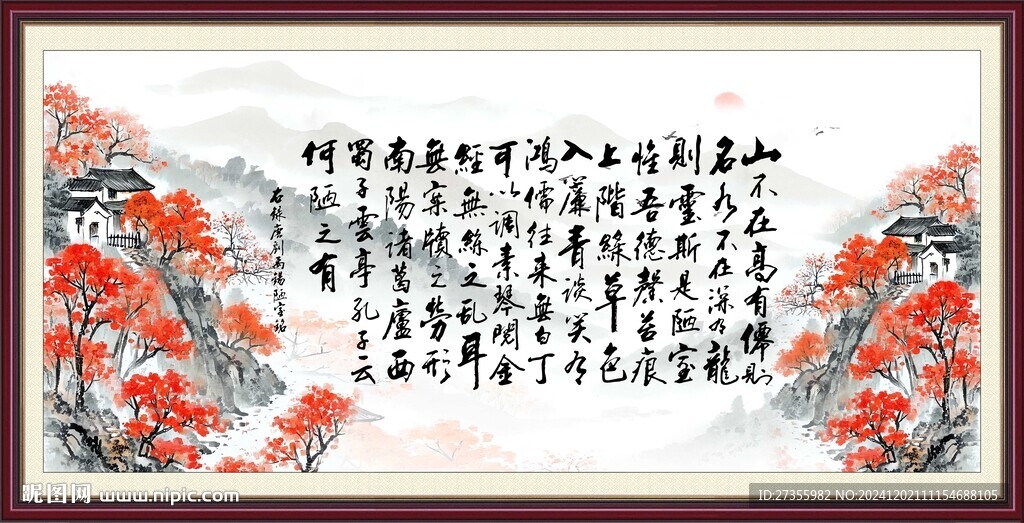 山不在高有僊則
名水不在深有龍
則靈斯是陋室
惟吾德馨苔痕
上階綠草色
入簾青談笑有
鴻儒往来無白丁
可以調素琴閱金
經無絲之乱耳
無案牘之勞形
南陽諸葛廬西
蜀子雲亭孔子云
何陋之有
右録唐刘禹锡陋室銘
昵图网 www.nipic.com
ID:27355982 NO:20241202111154688105